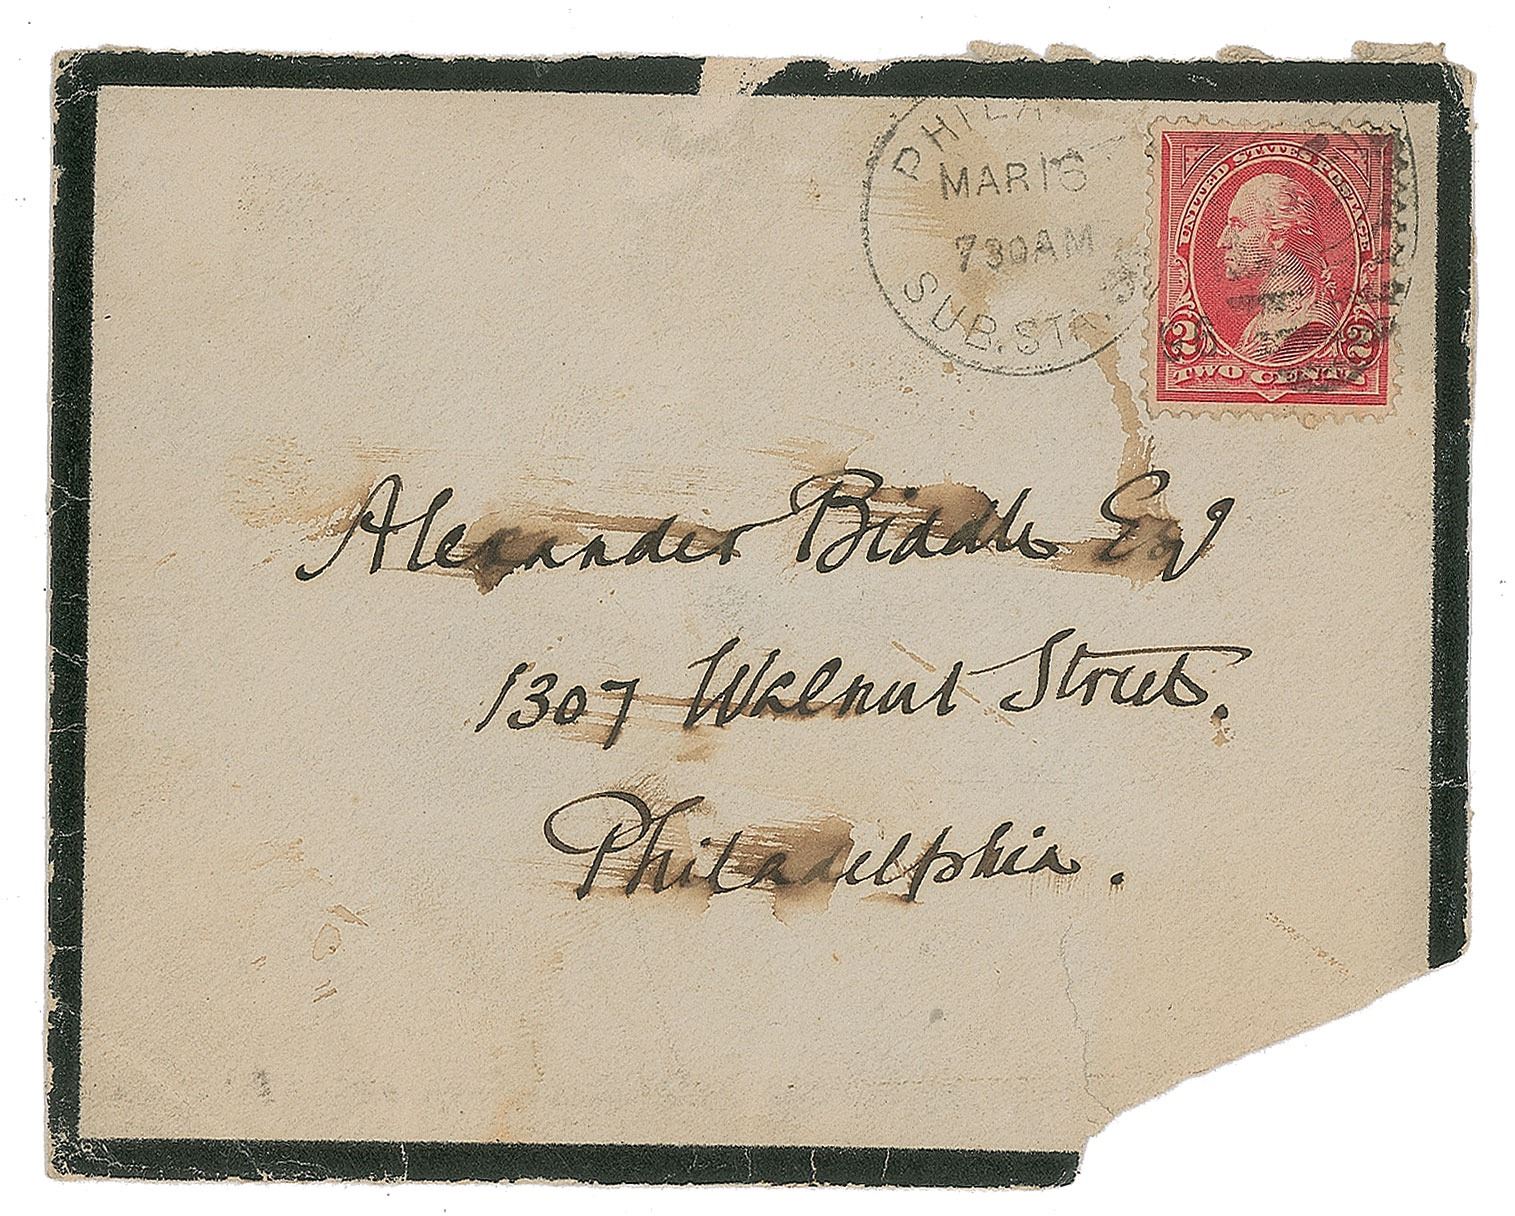 PHILA
MAR 16
7 30 AM
SUB. STA.
UNITED STATES POSTAGE
2 2
TWO CENTS
Alexander Biddle Esq
1307 Walnut Street.
Philadelphia.